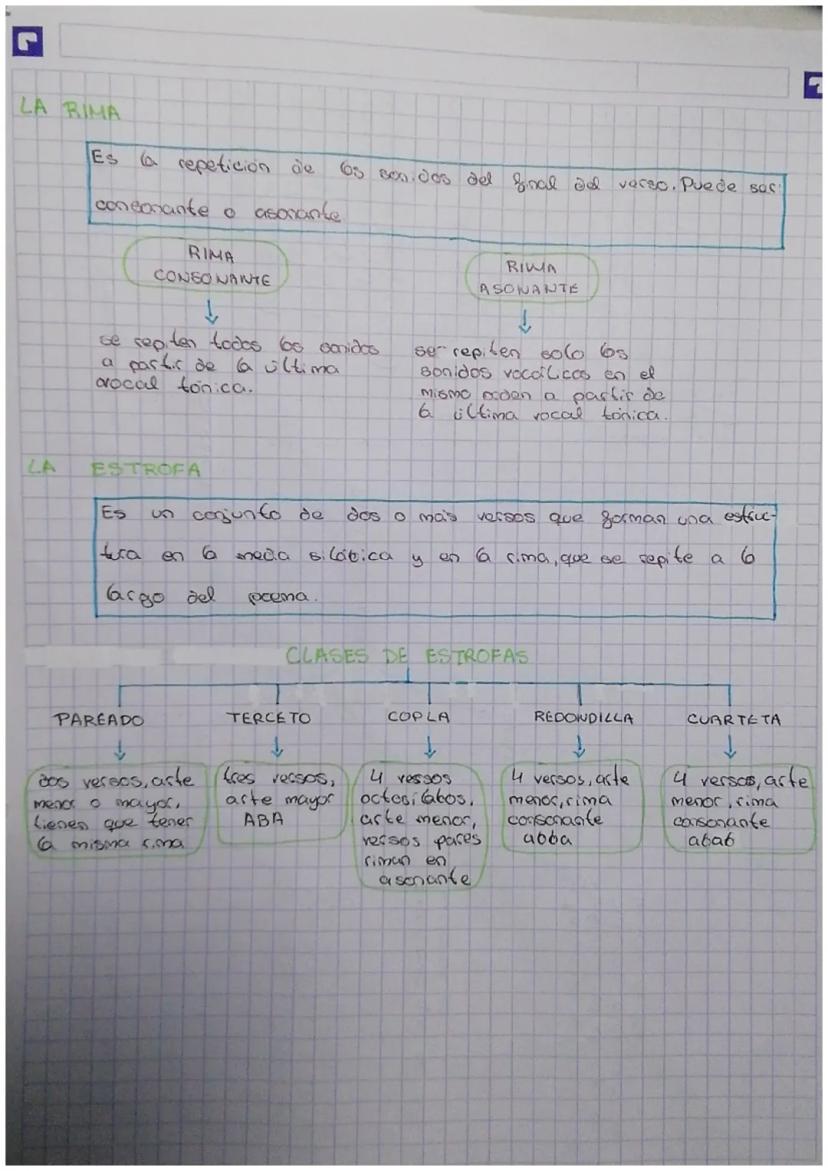 LA RIMA
Es la repetición de los sonidos del final del verso. Puede ser:
consonante o asonante
RIMA
CONSONANTE
se repiten todos los sonidos
a partir de la última
vocal tónica.
RIMA
ASONANTE
se repiten solo los
sonidos vocálicos en el
mismo orden a partir de
la última vocal tónica.
LA ESTROFA
Es un conjunto de dos o más versos que forman una estruc-
tura en la media silábica y en la rima, que se repite a lo
largo del poema.
CLASES DE ESTROFAS
PAREADO
dos versos, arte
menor o mayor,
tienen que tener
la misma rima
TERCETO
tres versos,
arte mayor
ABA
COPLA
4 versos
octosílabos,
arte menor,
versos pares
riman en
asonante
REDONDILLA
4 versos, arte
menor, rima
consonante
abba
CUARTETA
4 versos, arte
menor, rima
consonante
abab